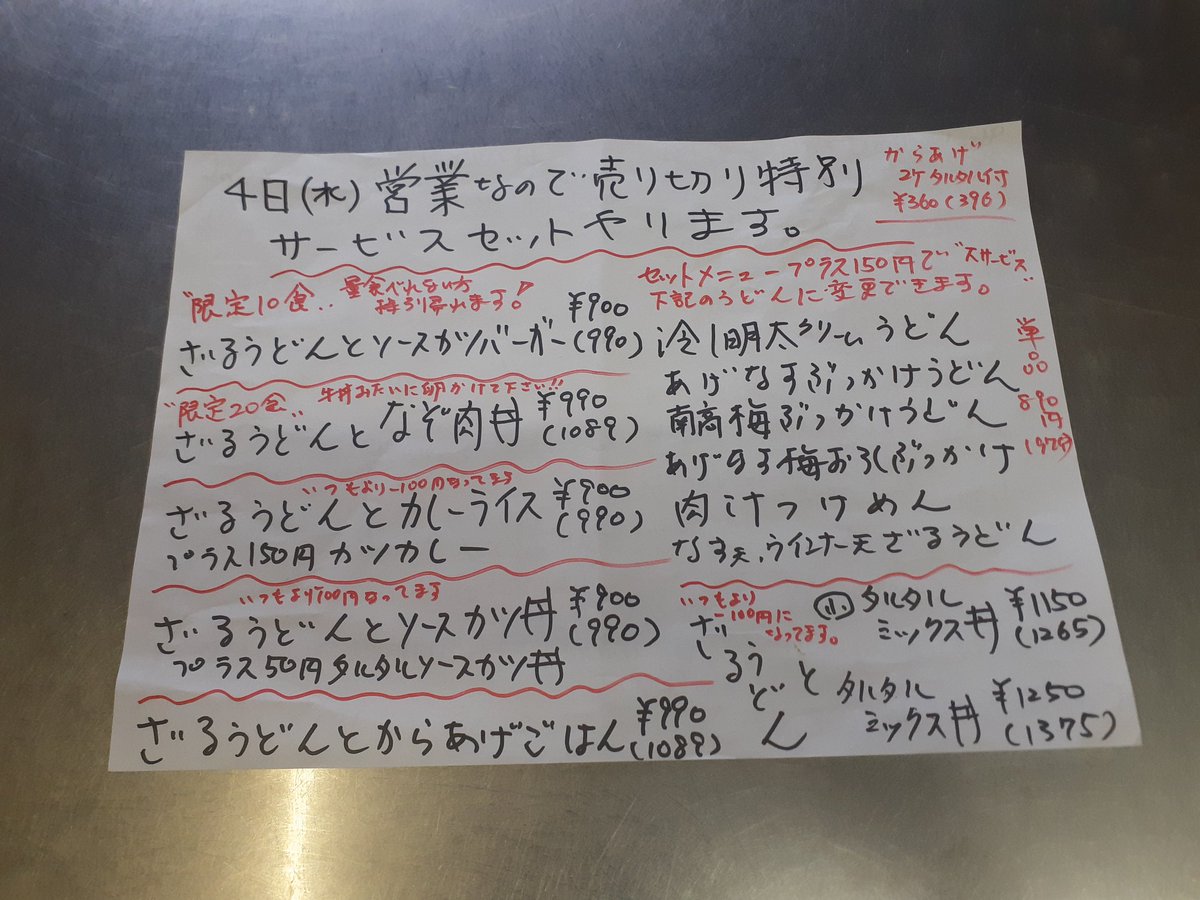 4日(水)営業なので売り切り特別
サービスセットやります。
からあげ
2ケタルタル付
¥360(396)
"限定10食"
量食べれない方
持ち帰れます!
ざるうどんとソースカツバーガー
¥900
(990)
"限定20食"
牛丼みたいに卵かけて下さい!!
ざるうどんとなぞ肉丼
¥990
(1089)
いつもより-100円なってます
ざるうどんとカレーライス
¥900
(990)
プラス150円カツカレー
いつもより100円なってます
ざるうどんとソースカツ丼
¥900
(990)
プラス50円タルタルソースカツ丼
ざるうどんとからあげごはん
¥990
(1089)
セットメニュープラス150円で"大サービス"
下記のうどんに変更できます。
単品890円
冷し明太クリームうどん
あげなすぶっかけうどん
南高梅ぶっかけうどん
あげなす梅おろしぶっかけ
肉汁つけめん
なす天、ウインナー天ざるうどん
いつもより
-100円に
なってます。
ざるうどんと
小 タルタル
ミックス丼
¥1150
(1265)
タルタル
ミックス丼
¥1250
(1375)